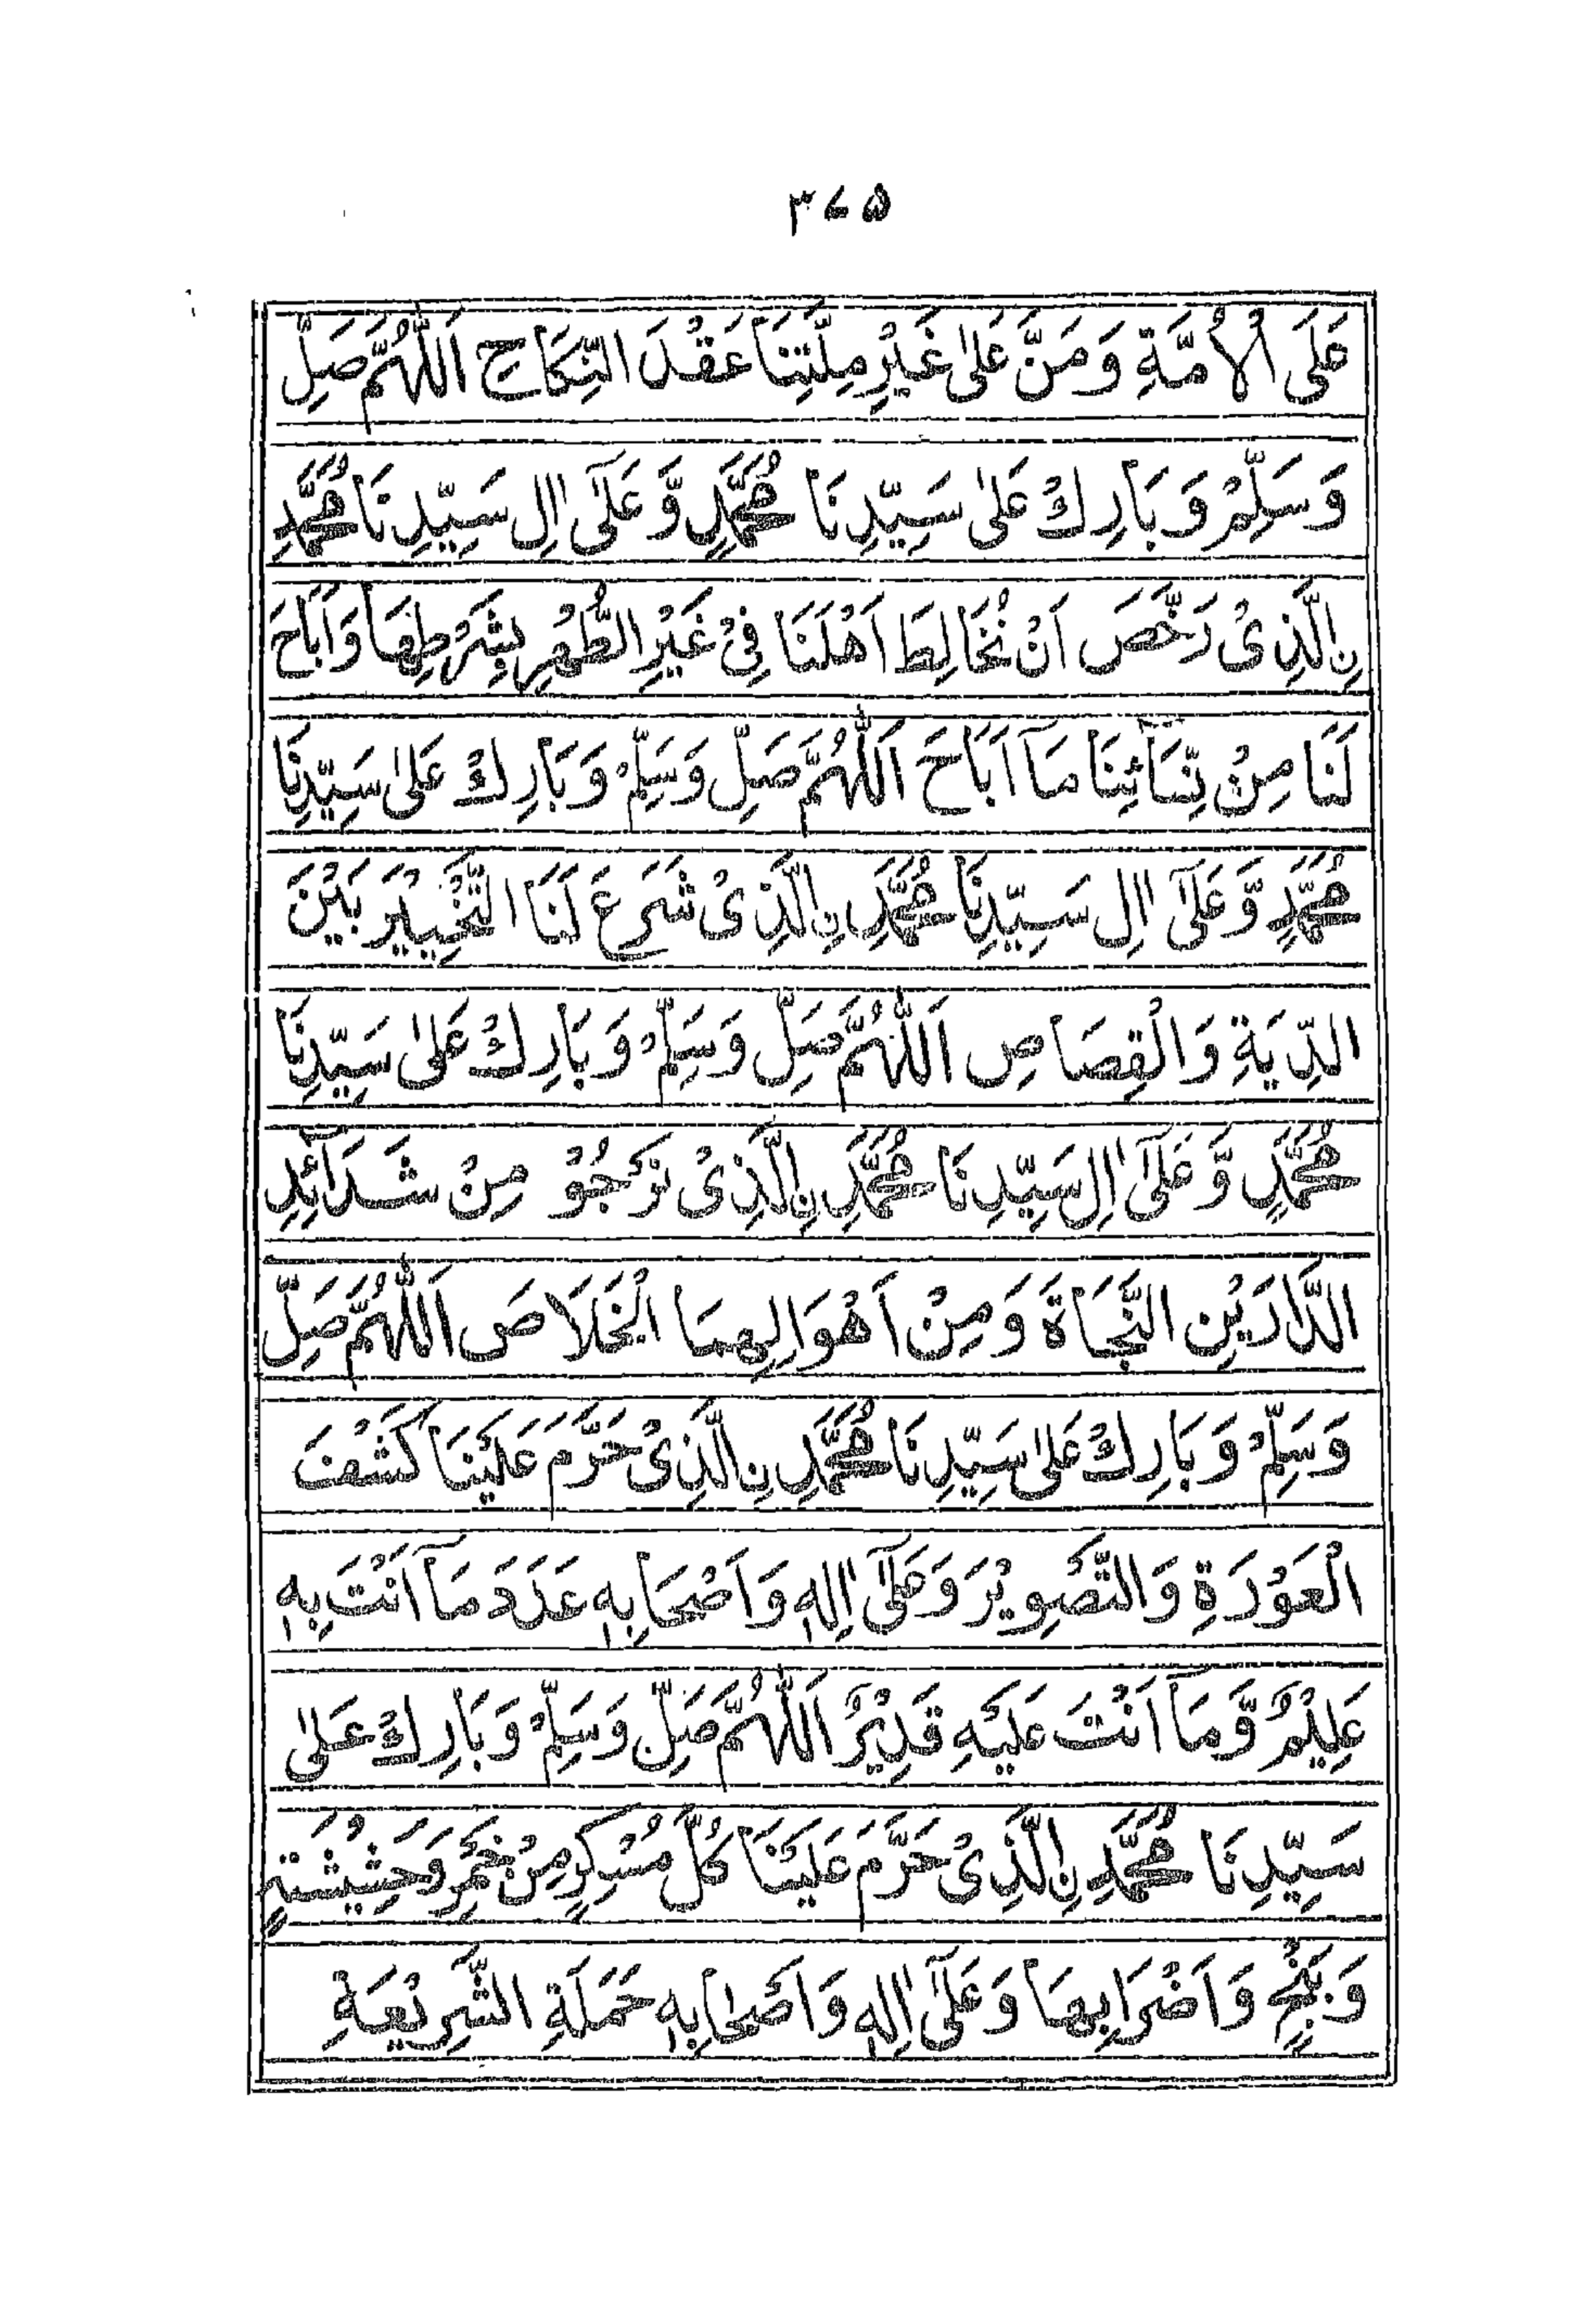 ۳۷۵
عَلَى الْاُمَّةِ وَمَنَّ عَلٰى غَيْرِ مِلَّتِنَا عَقْدَ النِّكَاحِ اَللّٰهُمَّ صَلِّ
وَسَلِّمْ وَبَارِكْ عَلٰى سَيِّدِنَا مُحَمَّدٍ وَّعَلٰٓى اٰلِ سَيِّدِنَا مُحَمَّدِ
نِ الَّذِىْ رَخَّصَ اَنْ نُخَالِطَ اَهْلَنَا فِىْ غَيْرِ الطُّهْرِ بِشَرْطِهَا وَاَبَاحَ
لَنَا مِنْ نِّسَآئِنَا مَآ اَبَاحَ اَللّٰهُمَّ صَلِّ وَسَلِّمْ وَبَارِكْ عَلٰى سَيِّدِنَا
مُحَمَّدٍ وَّعَلٰٓى اٰلِ سَيِّدِنَا مُحَمَّدِ نِ الَّذِىْ شَرَعَ لَنَا التَّخْيِيْرَ بَيْنَ
الدِّيَةِ وَالْقِصَاصِ اَللّٰهُمَّ صَلِّ وَسَلِّمْ وَبَارِكْ عَلٰى سَيِّدِنَا
مُحَمَّدٍ وَّعَلٰٓى اٰلِ سَيِّدِنَا مُحَمَّدِ نِ الَّذِىْ نَرْجُوْ مِنْ شَدَآئِدِ
الدَّارَيْنِ النَّجَاةَ وَمِنْ اَهْوَالِهِمَا الْخَلَاصَ اَللّٰهُمَّ صَلِّ
وَسَلِّمْ وَبَارِكْ عَلٰى سَيِّدِنَا مُحَمَّدِ نِ الَّذِىْ حَرَّمَ عَلَيْنَا كَشْفَ
الْعَوْرَةِ وَالتَّصْوِيْرَ وَعَلٰٓى اٰلِهٖ وَاَصْحَابِهٖ عَدَدَ مَآ اَنْتَ بِهٖ
عَلِيْمٌ وَّمَآ اَنْتَ عَلَيْهِ قَدِيْرٌ اَللّٰهُمَّ صَلِّ وَسَلِّمْ وَبَارِكْ عَلٰى
سَيِّدِنَا مُحَمَّدِ نِ الَّذِىْ حَرَّمَ عَلَيْنَا كُلَّ مُسْكِرٍ مِنْ خَمْرٍ وَحَشِيْشَةٍ
وَبَنْجٍ وَاَضْرَابِهَا وَعَلٰٓى اٰلِهٖ وَاَصْحَابِهٖ حَمَلَةِ الشَّرِيْعَةِ